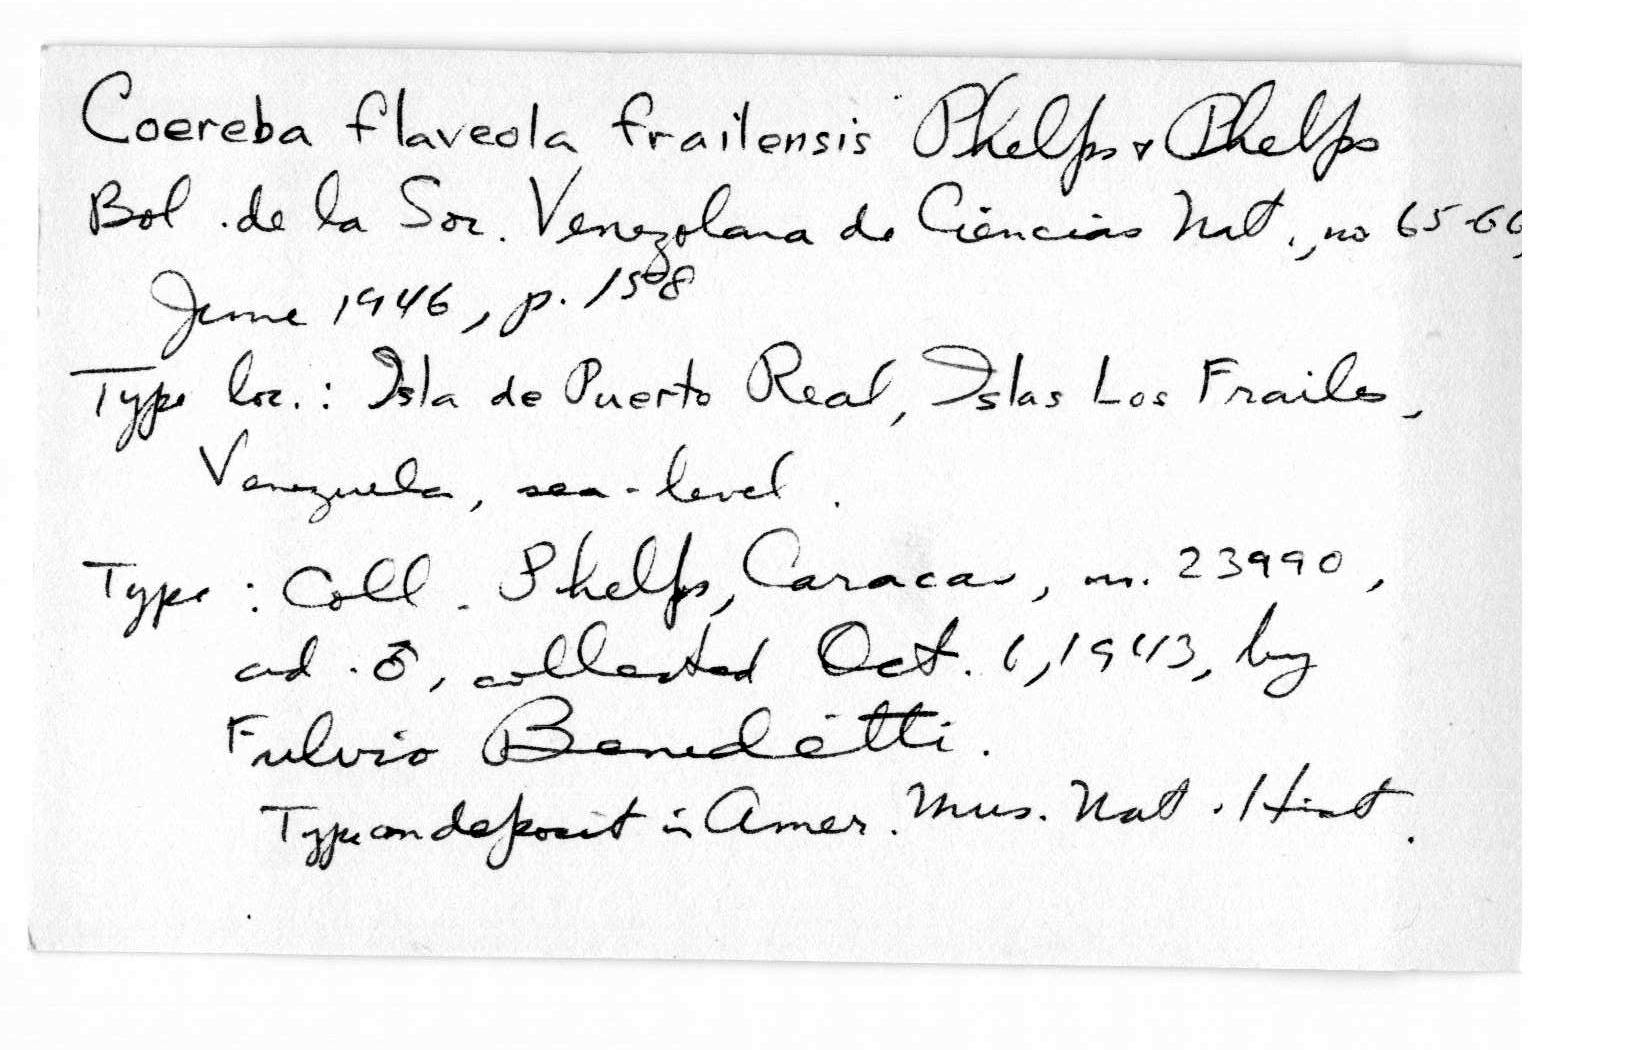 Coereba flaveola frailensis Phelps & Phelps
Bol. de la Soc. Venezolana de Ciencias Nat., no 65-66,
June 1946, p. 158
Type loc.: Isla de Puerto Real, Islas Los Frailes,
Venezuela, sea-level.
Type: Coll. Phelps, Caracas, no. 23990,
ad. ♂, collected Oct. 6, 1943, by
Fulvio Benedetti.
Type on deposit in Amer. Mus. Nat. Hist.